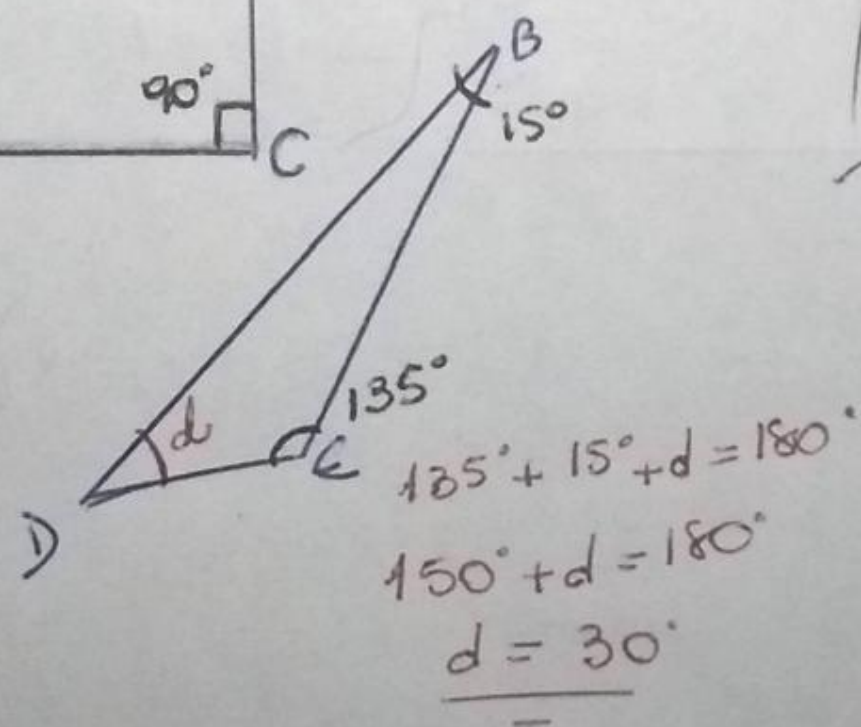 90°
C
B
15°
135°
d
C
D
135° + 15° + d = 180°
150° + d = 180°
d = 30°